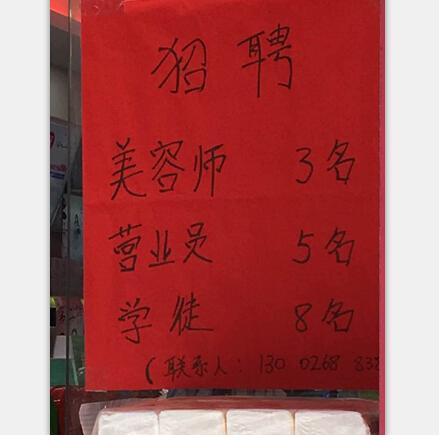 招聘
美容师 3名
营业员 5名
学徒 8名
(联系人: 130 0268 838